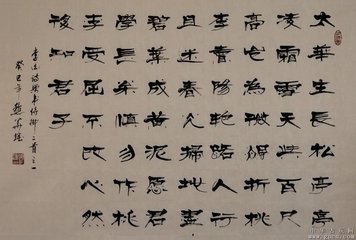 太華生長松亭亭
凌霜雪天與百尺
高豈為微飆折桃
李賣陽艷路人行
且迷春光掃地盡
碧葉成黃泥愿君
學長松慎勿作桃
李受屈不改心然
後知君子
李白詩贈韋侍御二首之一
癸巳年
www.gucn.com